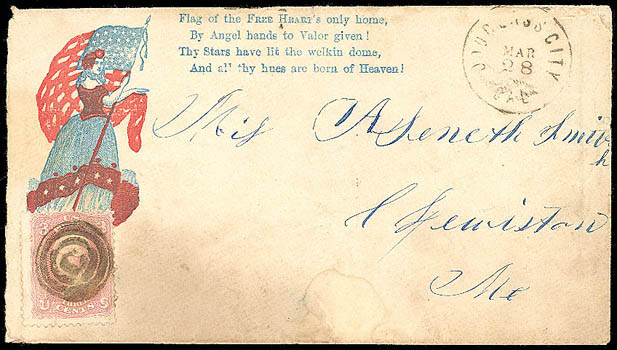 Flag of the FREE HEART'S only home,
By Angel hands to Valor given!
Thy Stars have lit the welkin dome,
And all thy hues are born of Heaven!
DOUGLASS CITY
MAR
28
CAL
Miss Aseneth Smith
Lewiston
Me
U S
3 CENTS 3